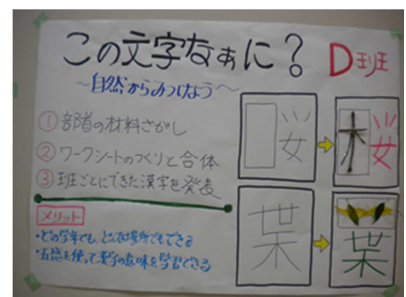 この文字なぁに？ D班
～自然からみつけよう～
① 部首の材料さがし
② ワークシートのつくりと合体
③ 班ごとにできた漢字を発表
メリット
・どの学年でも、どんな場所でもできる
・五感を使って漢字の意味を学習できる